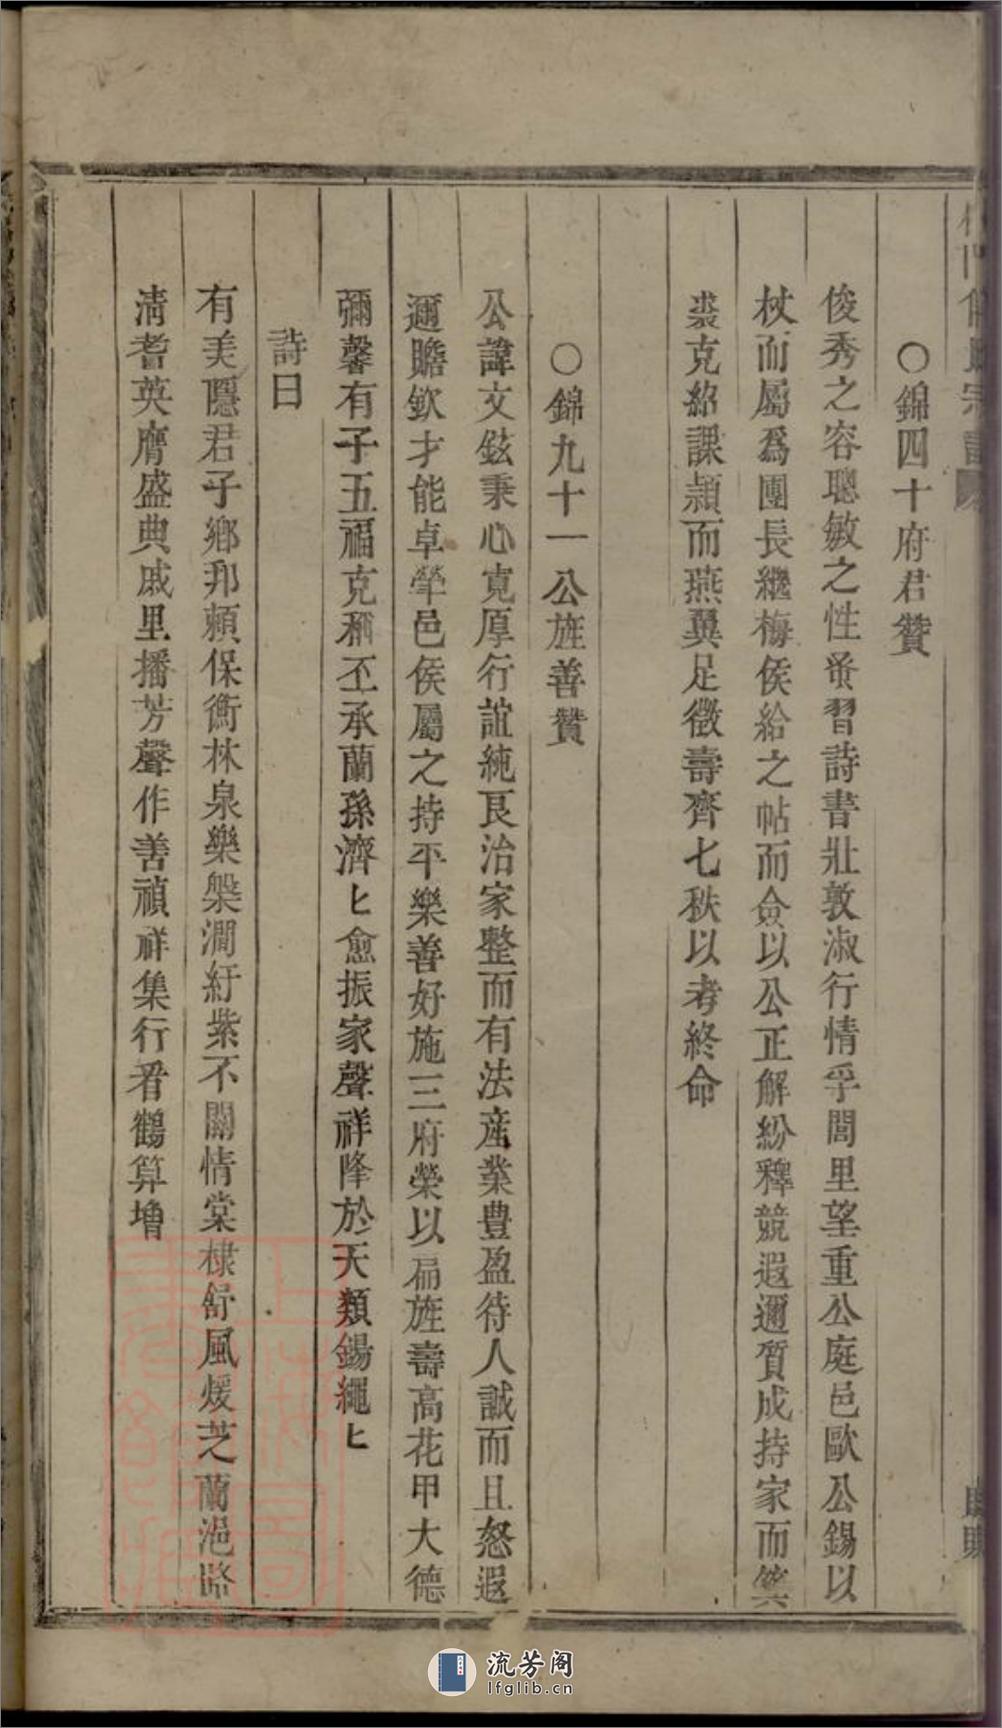 ○錦四十府君贊
俊秀之容聰敏之性蚤習詩書壯敦淑行情孚閭里望重公庭邑歐公錫以
杖而屬為團長繼梅侯給之帖而僉以公正解紛釋競遐邇質成持家而箕
裘克紹課穎而燕翼足徵壽齊七秩以考終命
○錦九十一公旌善贊
公諱文鉉秉心寬厚行誼純良治家整而有法產業豊盈待人誠而且恕遐
邇贍欽才能卓犖邑侯屬之持平樂善好施三府榮以扁旌壽高花甲大德
彌馨有子五福克稱丕承蘭孫濟〻愈振家聲祥降於天類錫繩〻
詩曰
有美隱君子鄉邦賴保衡林泉樂槃澗紆紫不關情棠棣舒風煖芝蘭浥露
清耆英膺盛典戚里播芳聲作善禎祥集行看鶴算增
流芳阁
lfglib.cn